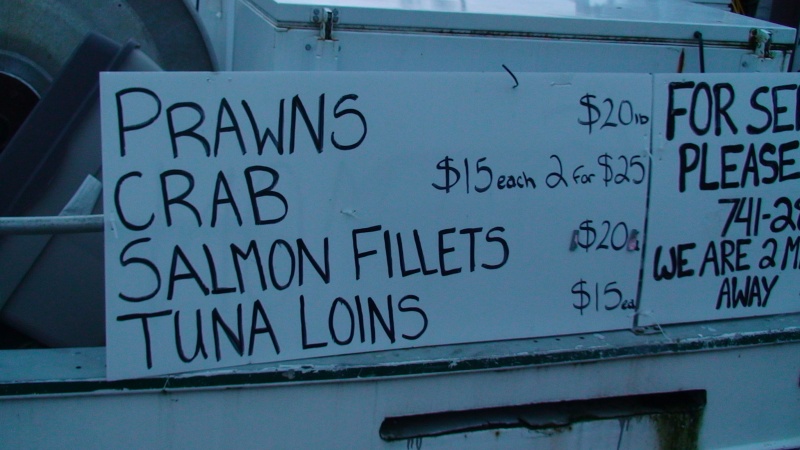 PRAWNS $20lb
CRAB $15 each 2 for $25
SALMON FILLETS $20
TUNA LOINS $15ea
FOR
PLEASE
741-28
WE ARE 2
AWAY